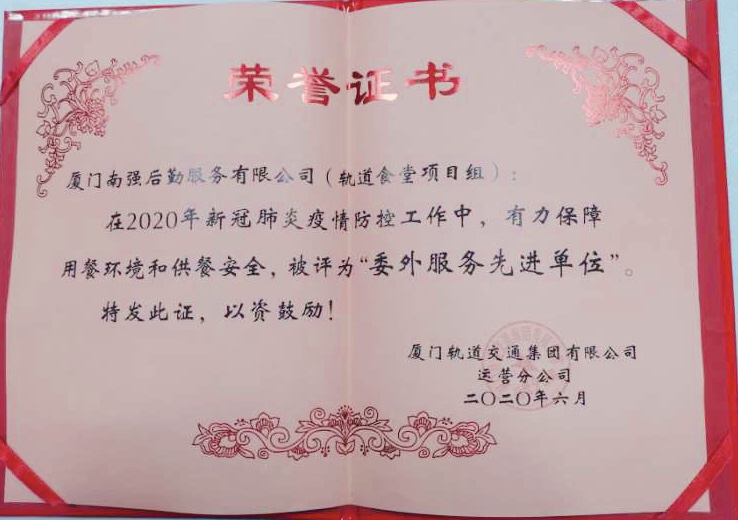 荣誉证书
厦门南强后勤服务有限公司（轨道食堂项目组）：
在2020年新冠肺炎疫情防控工作中，有力保障
用餐环境和供餐安全，被评为“委外服务先进单位”。
特发此证，以资鼓励！
厦门轨道交通集团有限公司
运营分公司
二〇二〇年六月